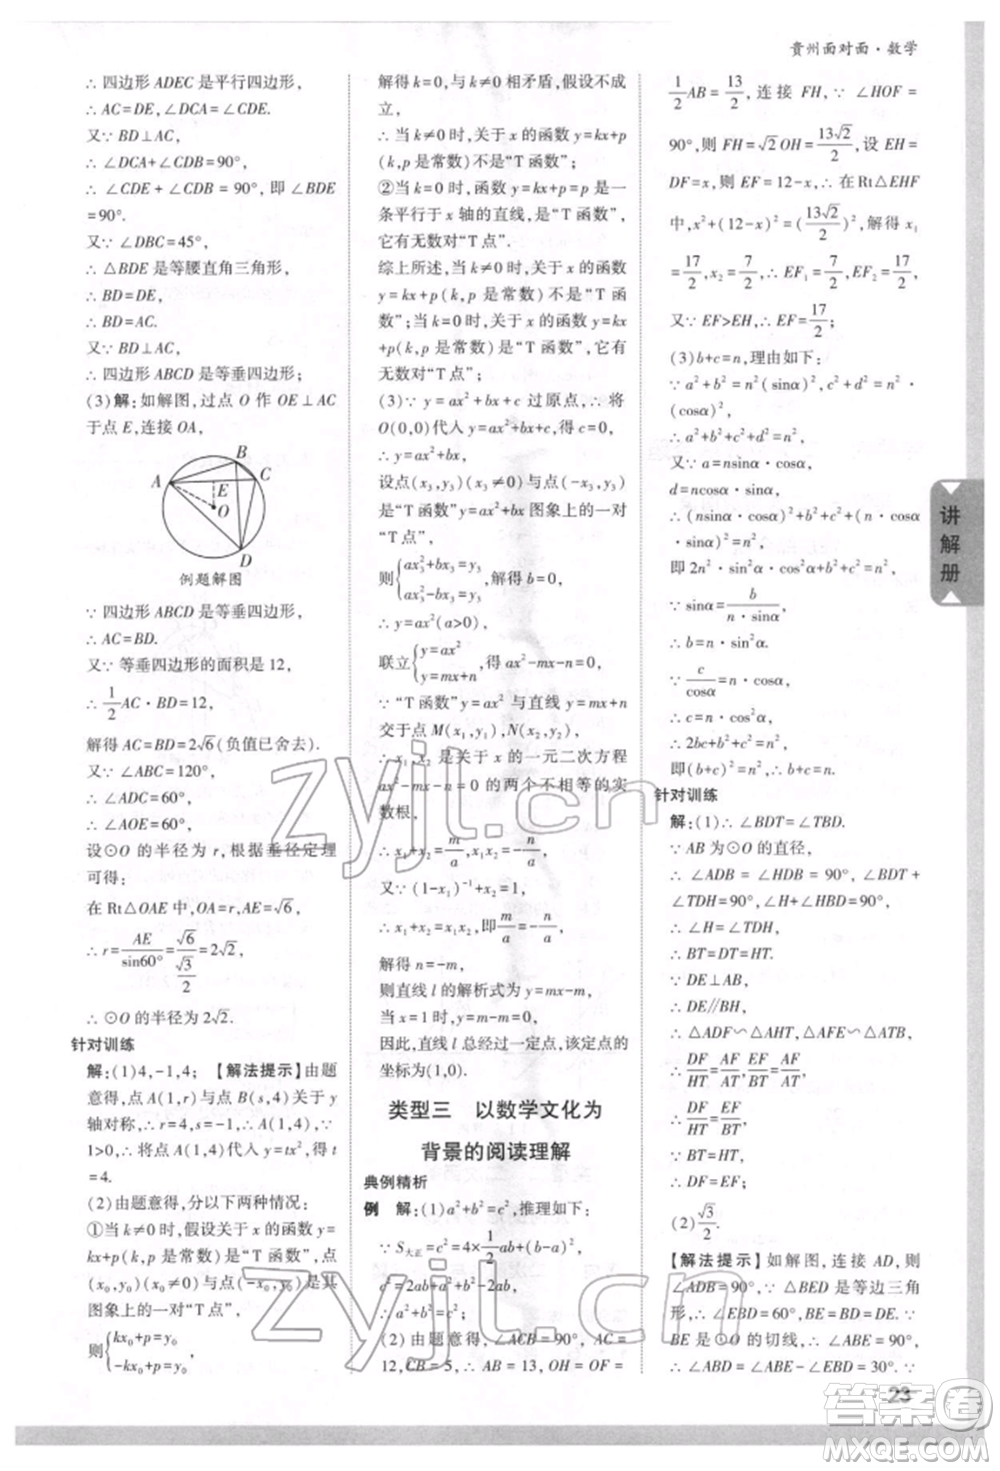 贵州面对面·数学
∴ 四边形 ADEC 是平行四边形,
∴ AC=DE, ∠DCA=∠CDE.
又∵ BD⊥AC,
∴ ∠DCA+∠CDB=90°,
∴ ∠CDE + ∠CDB = 90°, 即 ∠BDE
=90°.
又∵ ∠DBC=45°,
∴ △BDE 是等腰直角三角形,
∴ BD=DE,
∴ BD=AC.
又∵ BD⊥AC,
∴ 四边形 ABCD 是等垂四边形;
(3)解:如解图,过点 O 作 OE⊥AC
于点 E,连接 OA,
B
A
C
E
O
D
例题解图
∵ 四边形 ABCD 是等垂四边形,
∴ AC=BD.
又∵ 等垂四边形的面积是 12,
∴ 1/2 AC·BD=12,
解得 AC=BD=2√6(负值已舍去).
又∵ ∠ABC=120°,
∴ ∠ADC=60°,
∴ ∠AOE=60°.
设⊙O 的半径为 r,根据垂径定理
可得:
在 Rt△OAE 中,OA=r,AE=√6,
∴ r=AE/sin60°=√6/(√3/2)=2√2,
∴ ⊙O 的半径为 2√2.
针对训练
解:(1)4,-1,4;【解法提示】由题
意得,点 A(1,r)与点 B(s,4)关于 y
轴对称,∴ r=4,s=-1,∵ 1≥0,
1>0,∴ 将点 A(1,4)代入 y=tx²,得 t
=4.
(2)由题意得,分以下两种情况:
①当 k≠0 时,假设关于 x 的函数 y=
kx+p(k,p 是常数)是“T 函数”,点
(x₀,y₀)与点(-x₀,y₀)是其函数
图象上的一对“T 点”,
则{kx₀+p=y₀
-kx₀+p=y₀,
解得 k=0,与 k≠0 相矛盾,假设不成
立,
∴ 当 k≠0 时,关于 x 的函数 y=kx+p
(k,p 是常数)不是“T 函数”;
②当 k=0 时,函数 y=kx+p=p 是一
条平行于 x 轴的直线,是“T 函数”,
它有无数对“T 点”.
综上所述,当 k≠0 时,关于 x 的函数
y=kx+p(k,p 是常数)不是“T 函
数”;当 k=0 时,关于 x 的函数 y=kx
+p(k,p 是常数)是“T 函数”,它有
无数对“T 点”;
(3)∵ y=ax²+bx+c 过原点,∴ 将
O(0,0)代入 y=ax²+bx+c 得 c=0,
∴ y=ax²+bx.
设点(x₃,y₃)与点(-x₃,y₃)
是“T 函数”y=ax²+bx 图象上的一对
“T 点”,
则{ax₃²+bx₃=y₃
ax₃²-bx₃=y₃,解得 b=0,
∴ y=ax².
联立{y=ax²
y=mx+n,得 ax²-mx-n=0,
∵ “T 函数”y=ax² 与直线 y=mx+n
交于点 M(x₁,y₁),N(x₂,y₂),
∴ x₁,x₂ 是关于 x 的一元二次方程
ax²-mx-n=0 的两个不相等的实
数根,
∴ x₁+x₂=m/a,x₁x₂=-n/a.
又∵ (1-x₁)⁻¹+x₂=1,
∴ x₁+x₂=x₁x₂,即m/a=-n/a,
解得 n=-m,
则直线 l 的解析式为 y=mx-m,
当 x=1 时,y=m-m=0,
因此,直线 l 总经过一定点,该定点的
坐标为(1,0).
类型三 以数学文化为
背景的阅读理解
典例精析
例 解:(1)a²+b²=c²,推理如下:
∵ S大正=c²=4×1/2ab+(b-a)²,
c²=2ab+a²+b²-2ab,
∴ a²+b²=c²;
(2)由题意得,∠ACB=90°,AC=
12,CB=5,∴ EH=12,OH=OF=
1/2AB=13/2,连接 FH,∵ ∠HOF=
90°,则 FH=√2OH=13√2/2,设 EH=
DF=x,则 EF=12-x,∴ 在 Rt△EHF
中,x²+(12-x)²=(13√2/2)²,解得 x₁
=17/2,x₂=7/2,∴ EF₁=7/2,EF₂=17/2,
又∵ EF>EH,∴ EF=17/2;
(3)b+c=n,理由如下:
∵ a²+b²+c²+d²=n²(sinα)²+n²·
(cosα)²,
∴ a²+b²+c²+d²=n².
又∵ a=nsinα·cosα,
d=ncosα·sinα,
∴ (nsinα·cosα)²+b²+c²+
(ncosα·sinα)²=n²,
即 2n²sin²α·cos²α+b²+c²=n².
∵ sinα=b/(n·sinα),
∴ b=n·sin²α,
∵ c/cosα=n·cosα,
∴ c=n·cos²α,
∴ 2bc+b²+c²=n²,
即(b+c)²=n²,∴ b+c=n.
针对训练
解:(1)∴ ∠BDT=∠TBD.
∵ AB 为⊙O 的直径,
∴ ∠ADB=∠HDB=90°,∠BDT+
∠TDH=90°,∠H+∠HBD=90°,
∴ ∠H=∠TDH,
∴ BT=DT=HT.
∵ DE⊥AB,
∴ DE∥BH,
∴ △ADF∽△AHT,△AEF∽△ABT,
∴ DF/HT=AF/AT,EF/BT=AF/AT,
∴ DF/HT=EF/BT.
∵ HT=BT,
∴ DF=EF;
(2)√3/2.
【解法提示】如解图,连接 AD,则
∠ADB=90°.∵ △BED 是等边三角
形,∴ ∠EBD=60°,BE=BD=DE.∵
BE 是⊙O 的切线,∴ ∠ABE=90°,
∴ ∠ABD=∠ABE-∠EBD=30°.∵
讲解册
23
zyjl.cn
zyjl.cn
答案圈
MXQE.COM